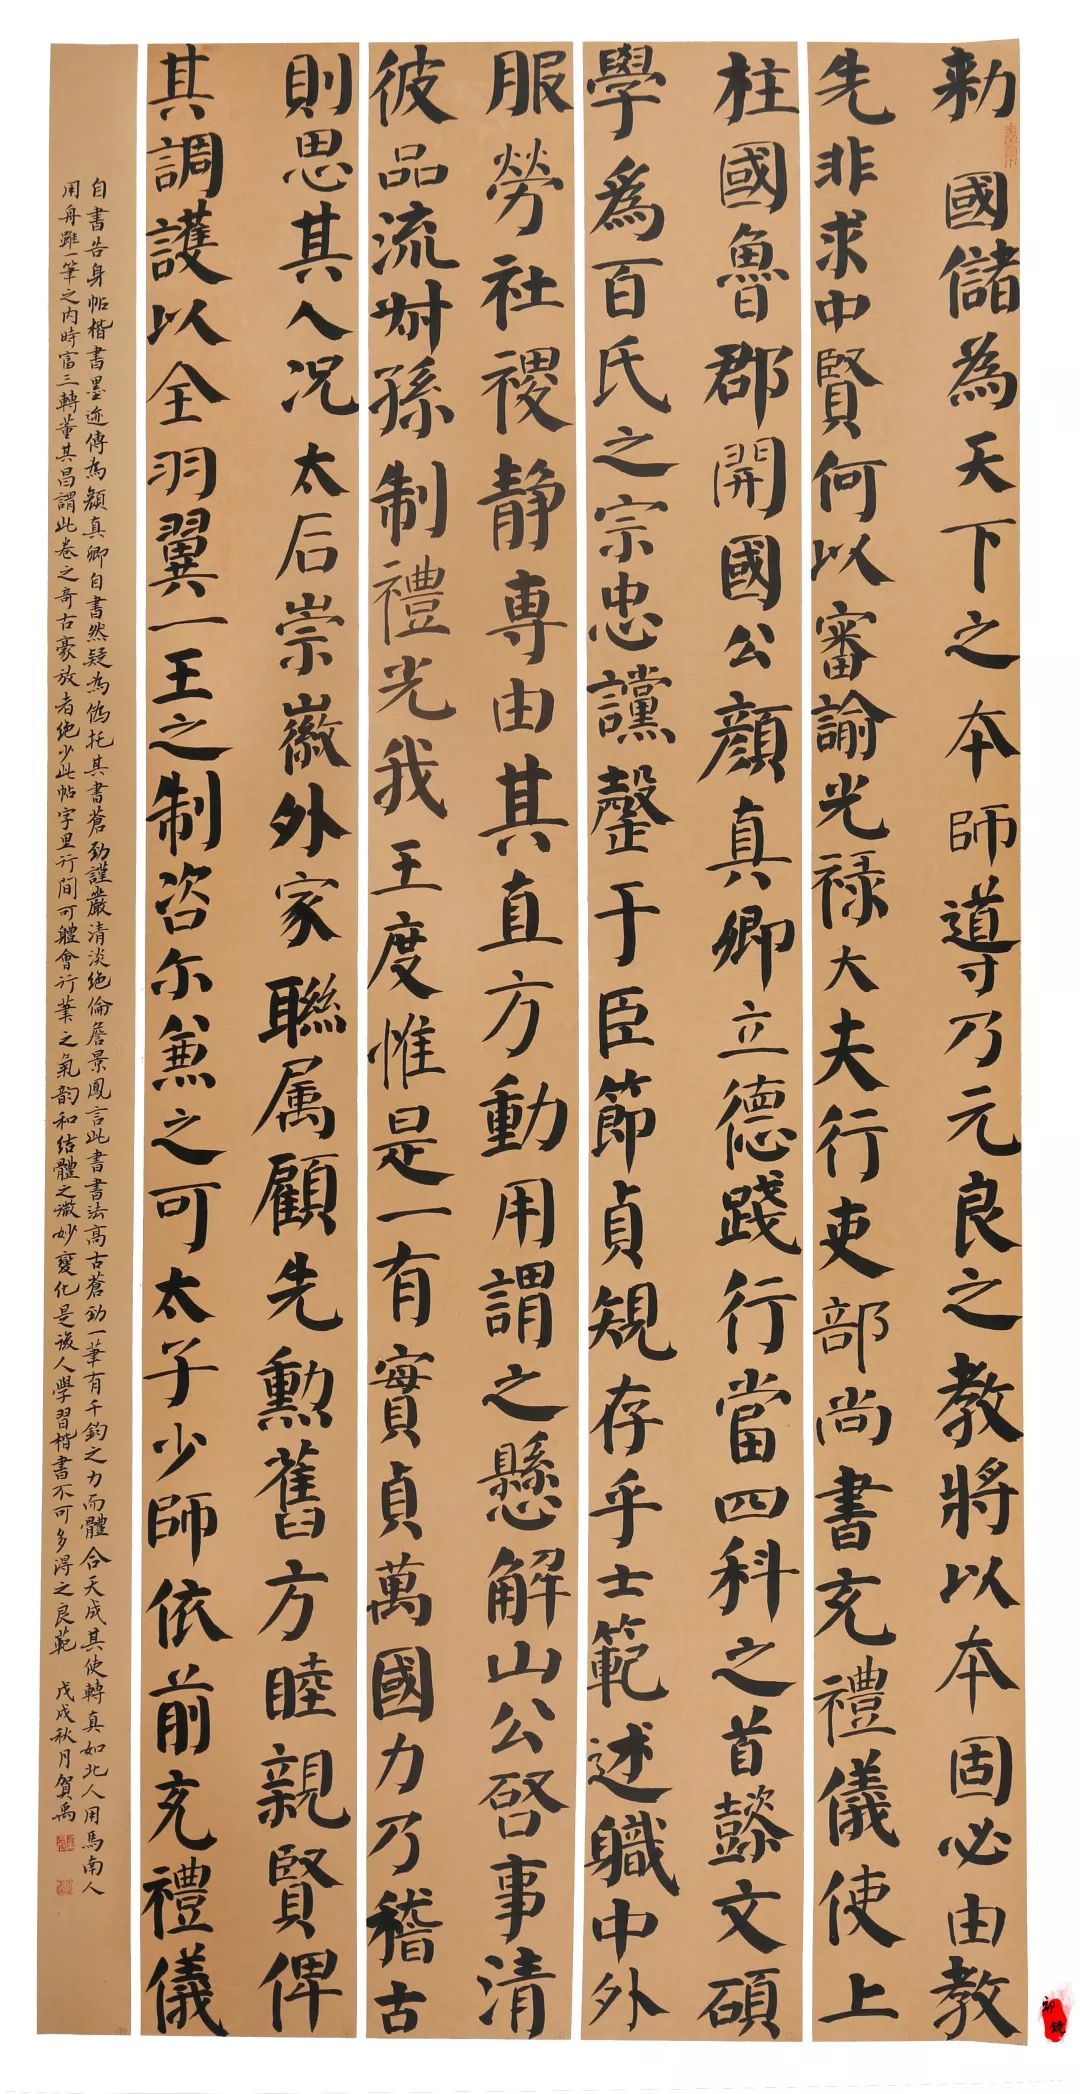 勑國儲為天下之本師導乃元良之教將以本固必由教
先非求中賢何以審諭光禄大夫行吏部尚書充禮儀使上
柱國魯郡開國公顔真卿立德踐行當四科之首懿文碩
學為百氏之宗忠讜罄于臣節貞規存乎士範述職中外
服勞社稷静專由其直方動用謂之懸解山公啓事清
彼品流叔孫制禮光我王度惟是一有實貞萬國力乃稽古
則思其人况太后崇徽外家聯属顧先勳舊方睦親賢俾
其調護以全羽翼一王之制咨尔兼之可太子少師依前充禮儀
自書告身帖楷書墨迹傳為顔真卿自書然疑為偽托其書蒼勁謹嚴清淡絶倫詹景鳳言此書書法高古蒼勁一筆有千鈞之力而體合天成其使轉真如北人用馬南人
用舟雖一筆之内時富三轉董其昌謂此卷之奇古豪放者絶少此帖字里行間可體會行筆之氣韵和结體之微妙變化是後人學習楷書不可多得之良範 戊戌秋月賀禹